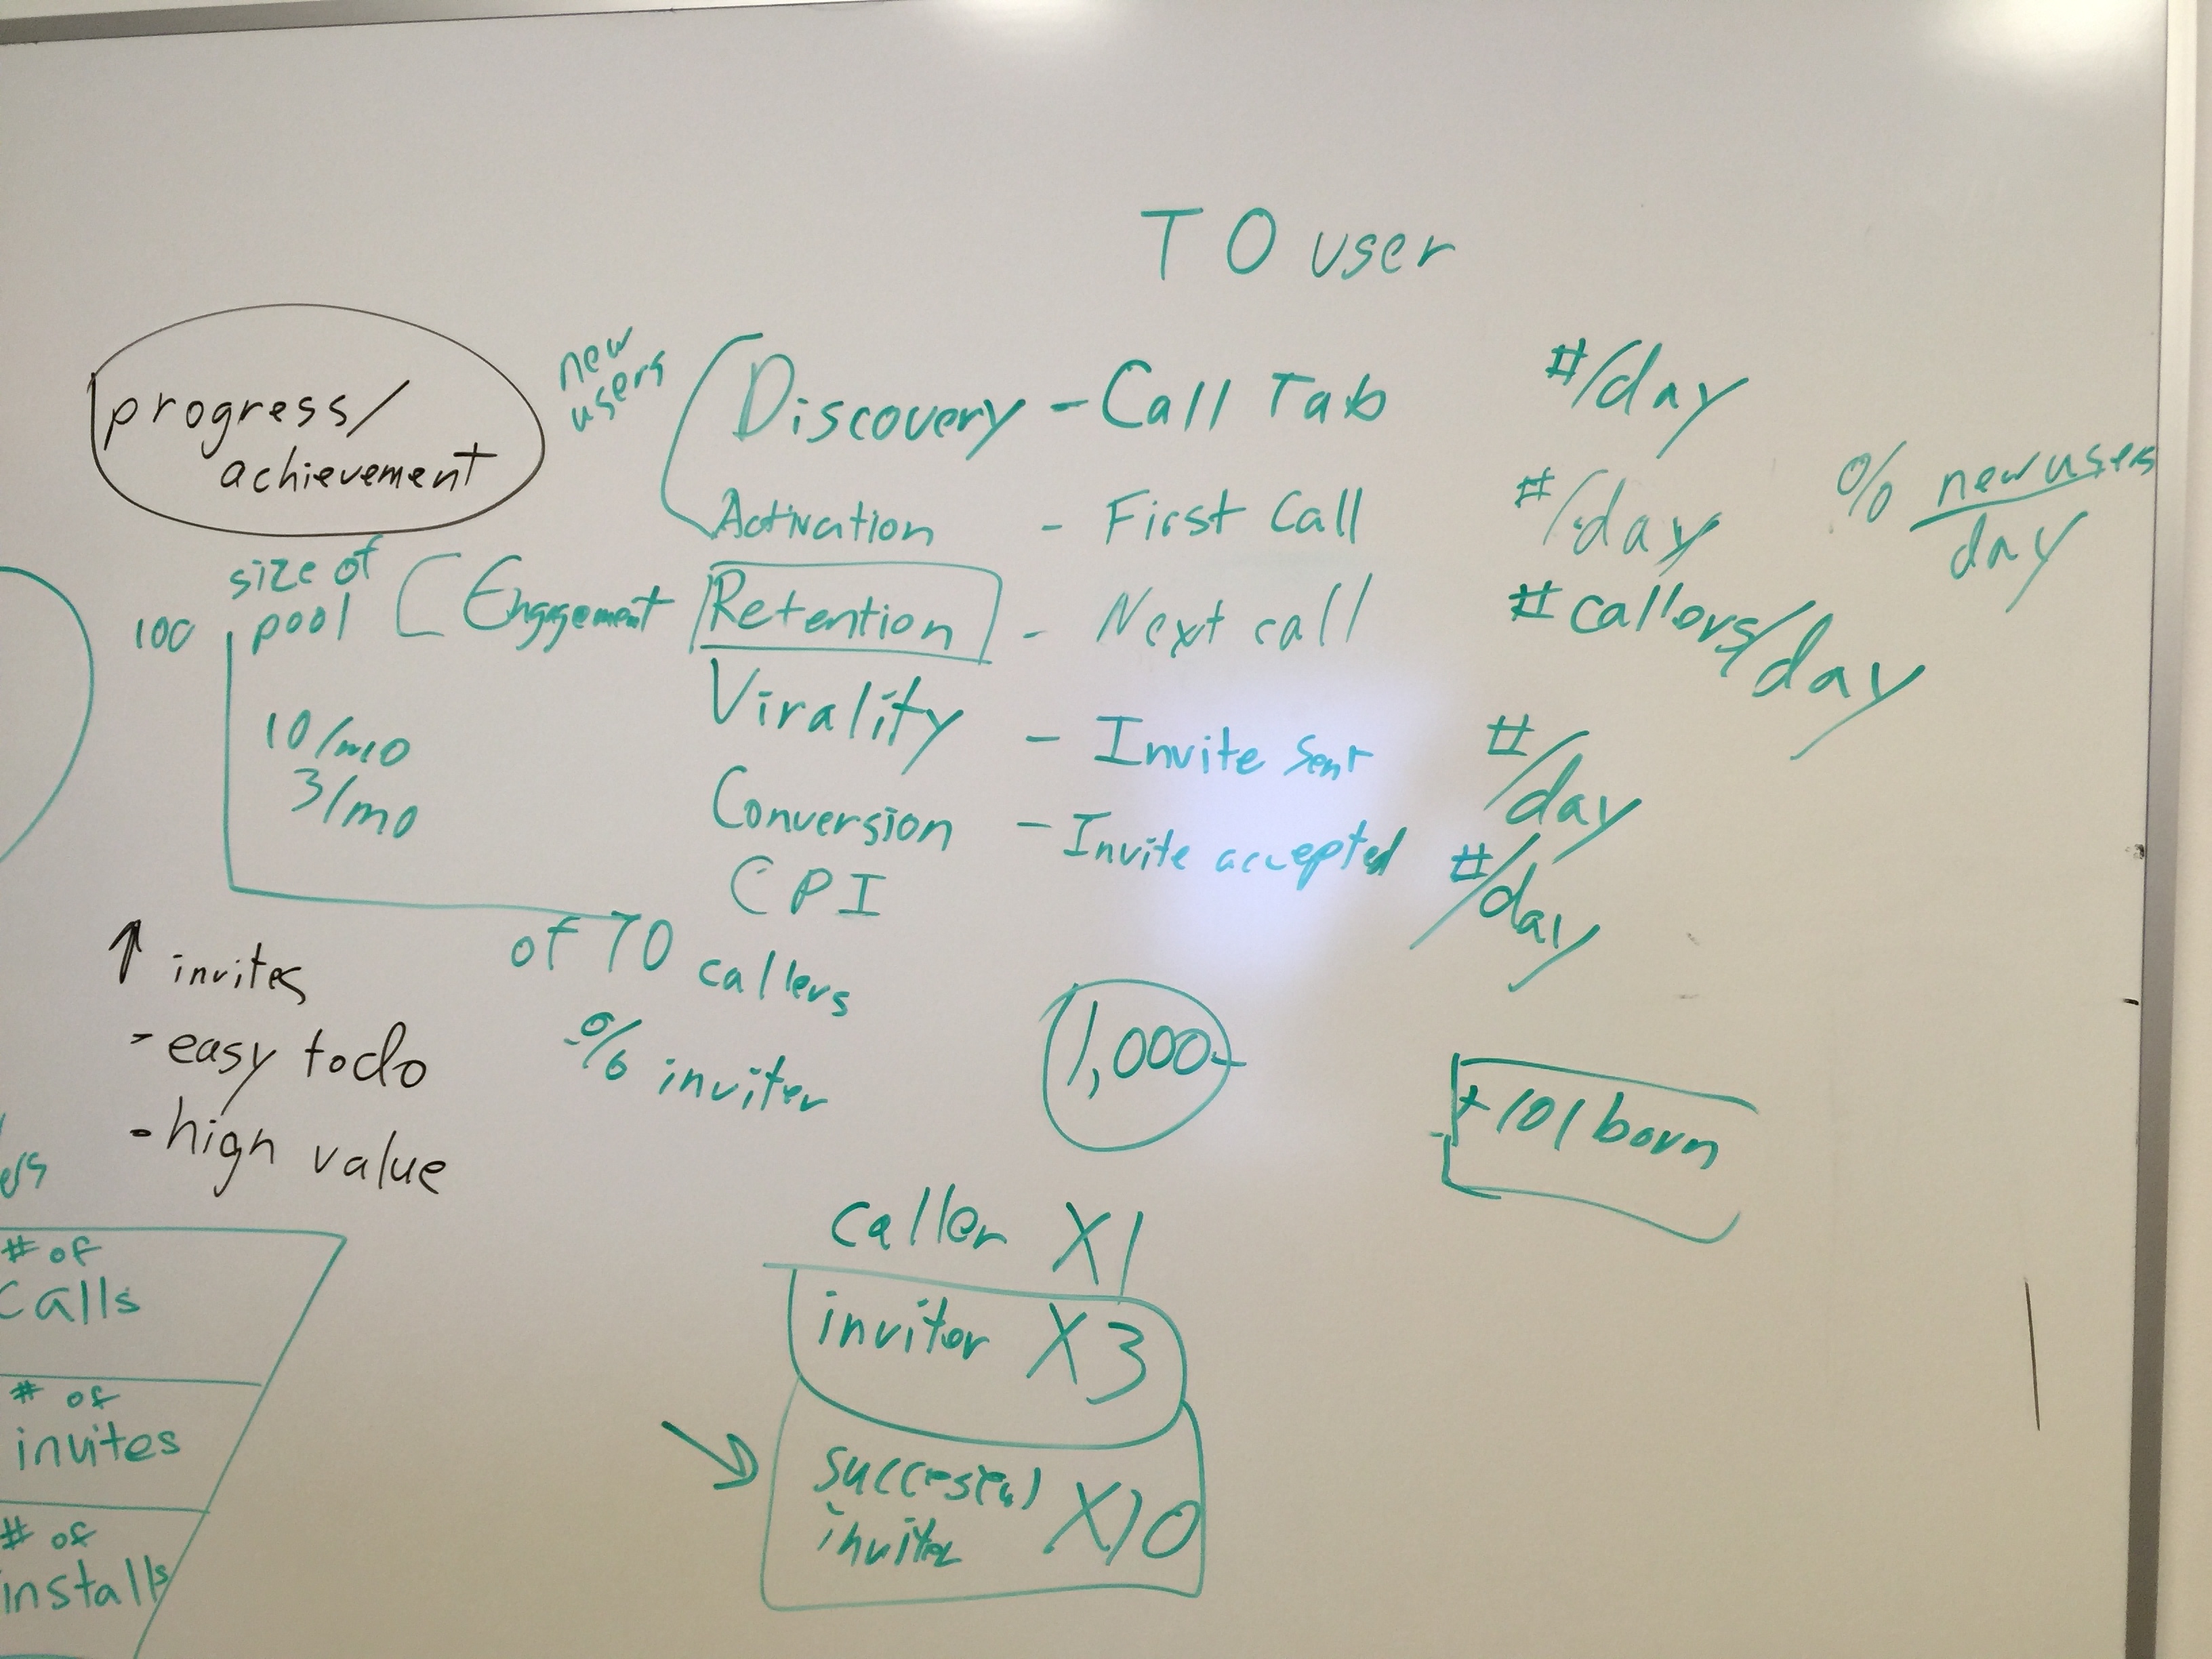 TO user
progress/
achievement
new
users
Discovery - Call Tab #/day
Activation - First Call #/day % new users
day
size of
100 pool Engagement Retention - Next call # callers/day
10/mo
3/mo
Virality - Invite Sent #/day
Conversion - Invite accepted #/day
CPI
of 70 callers
% inviter
↑ invites
- easy to do
- high value
1,000
+101 born
caller X1
invitor X3
successful X10
inviter
# of
calls
# of
invites
# of
installs